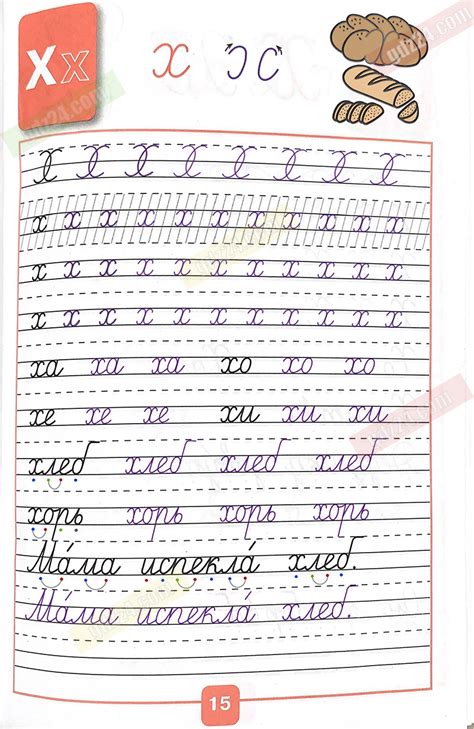 Х х х Ɔ С
gdz24.com
Х Х Х Х Х Х Х Х
х х х х х х х х х х х
х х х х х х х х х х х
х х х х х х х х х х х
ха ха ха хо хо хо
хе хе хе хи хи хи
хлеб хлеб хлеб хлеб
хорь хорь хорь хорь
Ма́ма испекла́ хлеб.
Ма́ма испекла́ хлеб.
15